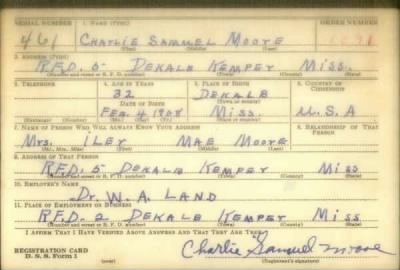 SERIAL NUMBER 1. NAME (Print) ORDER NUMBER
461 CHARLIE SAMMEL MOORE
(First) (Middle) (Last)
2. ADDRESS (Print)
R.F.D. 5 DEKALB KEMPER MISS.
(Number and street or R. F. D. number) (Town) (County) (State)
3. TELEPHONE 4. AGE IN YEARS 5. PLACE OF BIRTH 6. COUNTRY OF CITIZENSHIP
32 DEKALB
DATE OF BIRTH (Town or county)
FEB. 4 1908 MISS. U.S.A
(Exchange) (No.) (Mo.) (Day) (Yr.) (State or country)
7. NAME OF PERSON WHO WILL ALWAYS KNOW YOUR ADDRESS 8. RELATIONSHIP OF THAT PERSON
Mrs. ILEY MAE MOORE
(Mr., Mrs., Miss) (First) (Middle) (Last)
9. ADDRESS OF THAT PERSON
R.F.D. 5 DEKALB KEMPER MISS
(Number and street or R. F. D. number) (Town) (County) (State)
10. EMPLOYER'S NAME
Dr. W. A. LAND
11. PLACE OF EMPLOYMENT OR BUSINESS
R.F.D-2 DEKALB KEMPER MISS
(Number and street or R. F. D. number) (Town) (County) (State)
I AFFIRM THAT I HAVE VERIFIED ABOVE ANSWERS AND THAT THEY ARE TRUE.
REGISTRATION CARD
D. S. S. Form 1 (over) Charlie Samuel Moore
(Registrant's signature)